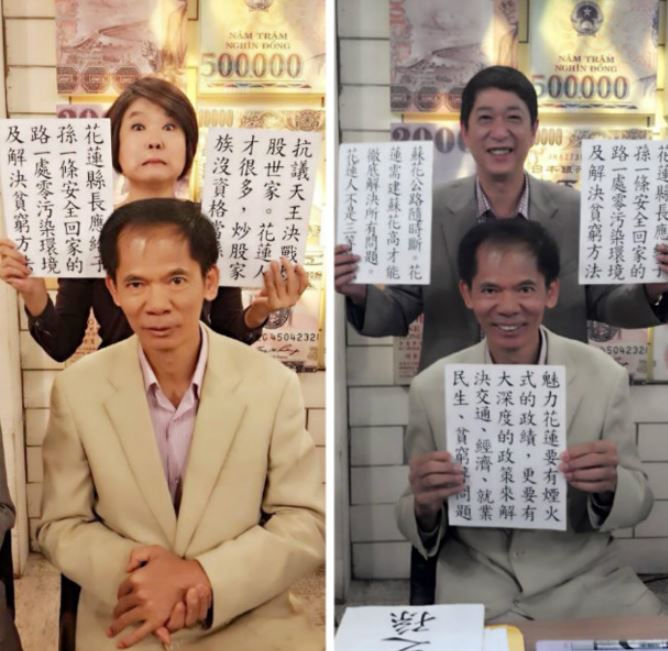 NĂM TRĂM
NGHÌN ĐỒNG
500000
花蓮縣長應給子
孫一條安全回家的
路一處零污染環境
及解決貧窮方法
抗議天王決戰
股世家。花蓮人
才很多，炒股家
族沒資格當縣
NĂM TRĂM
NGHÌN ĐỒNG
500000
蘇花公路隨時斷。花
蓮需建蘇花高才能
徹底解決所有問題。
花蓮人不是三等
花蓮縣長應給子
孫一條安全回家的
路一處零污染環境
及解決貧窮方法
魅力花蓮要有煙火
式的政績，更要有
大深度的政策來解
決交通、經濟、就業
民生、貧窮等問題